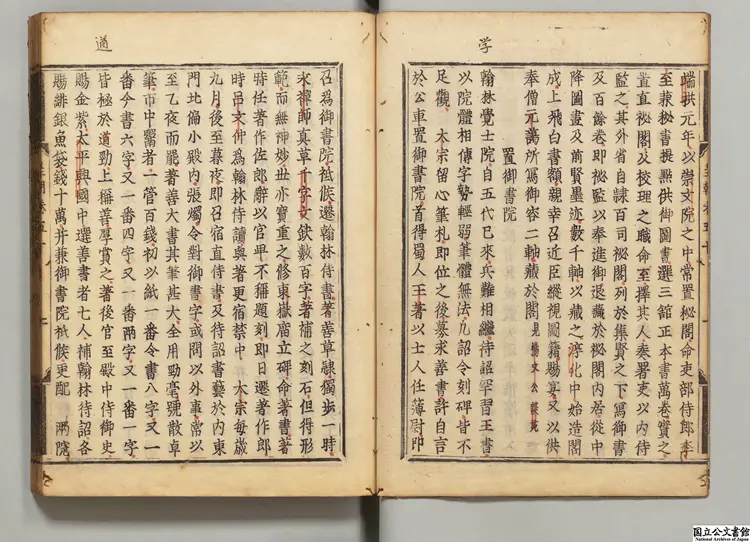 学
端拱元年以崇文院之中常置秘閣命吏部侍郎李
至兼秘書提點供御圖書選三館正本書萬卷實之
置直秘閣及校理之職命至擇其人奏署吏以內侍
監之其外省自隷百司秘閣列於集賢之下寫御書
及百餘卷即秘監以奉進御退藏於秘閣內帝從中
降圖畫及前賢墨迹數千軸以藏之淳化中始造閣
成上飛白書額親幸召近臣縱視圖籍賜宴又以供
奉僧元藹所寫御容二軸藏於閣 見楊文公談苑
置御書院
翰林學士院自五代已來兵難相繼待詔罕習王書
以院體相傳字勢輕弱筆體無法凡詔令刻碑皆不
足觀 太宗留心筆札即位之後募求善書許自言
於公車置御書院首得蜀人王著以士人任簿尉即
遒
召爲御書院祗候遷翰林侍書著善草隷獨步一時
永禪師真草千字文缺數百字著補之刻石但得形
範而無神妙世亦寶重之修東嶽廟立碑命著書著
時任著作佐郎辭以官卑不稱題刻即日遷著作郎
時呂文仲爲翰林侍讀與著更宿禁中 太宗每歲
九月後至暮夜即召宿直侍書及待詔書藝於內東
門北偏小殿內張燭令對御書字或問以外事常以
至乙夜而罷著善大書其筆甚大全用勁毫號散卓
筆市中鬻者一管百錢初以紙一番令書八字又一
番令書六字又一番四字又一番兩字又一番一字
皆極於遒勁上稱善厚賞之著後官至殿中侍御史
賜金紫太平興國中選善書者七人補翰林待詔各
賜緋銀魚袋錢十萬并兼御書院祗候更配 兩院
国立公文書館
National Archives of Japan